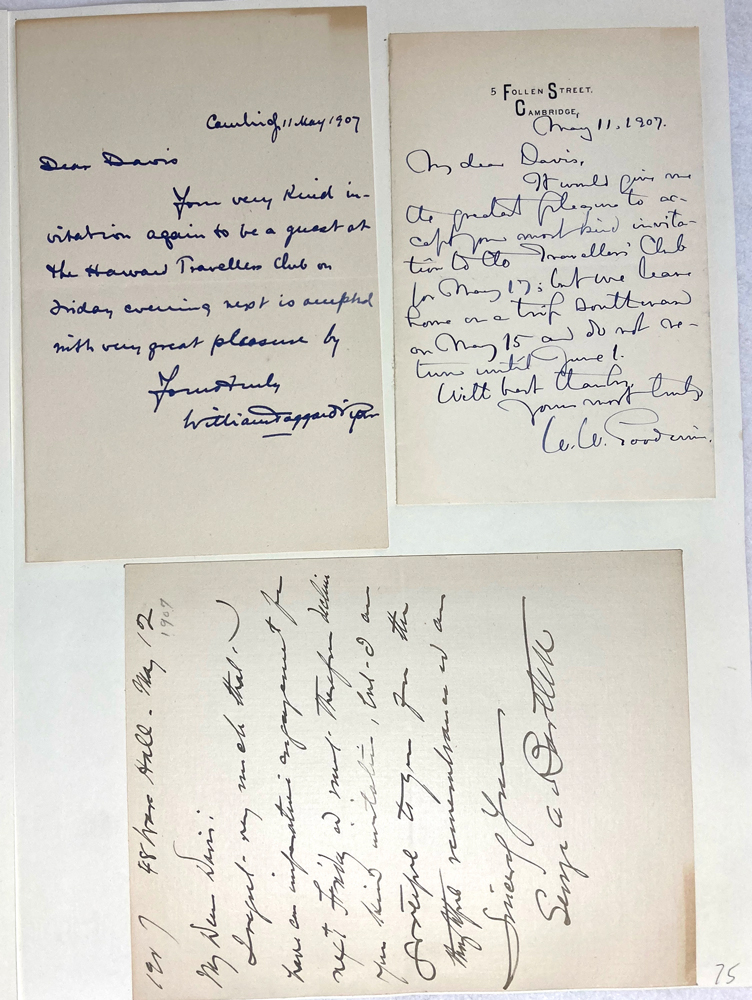 Cambridge 11 May 1907
Dear Davis
Your very kind in-
vitation again to be a guest at
the Harvard Travellers Club on
Friday evening next is accepted
with very great pleasure by
Yours truly
William Taggard Piper
5 FOLLEN STREET.
CAMBRIDGE,
May 11, 1907.
My dear Davis,
It would give me
the greatest pleasure to ac-
cept your most kind invita-
tion to the Travellers' Club
for May 17; but we leave
home on a trip southward
on May 15 and do not re-
turn until June 1.
With best thanks,
Yours most truly
W. W. Goodwin.
1907 48 Ware Hall - May 12
1907
My Dear Davis:
I regret very much that I
have an imperative engagement for
next Friday and must therefore decline
your kind invitation, but I am
grateful to you for the
thoughtful remembrance and am
Sincerely Yours
George A Bartlett
75